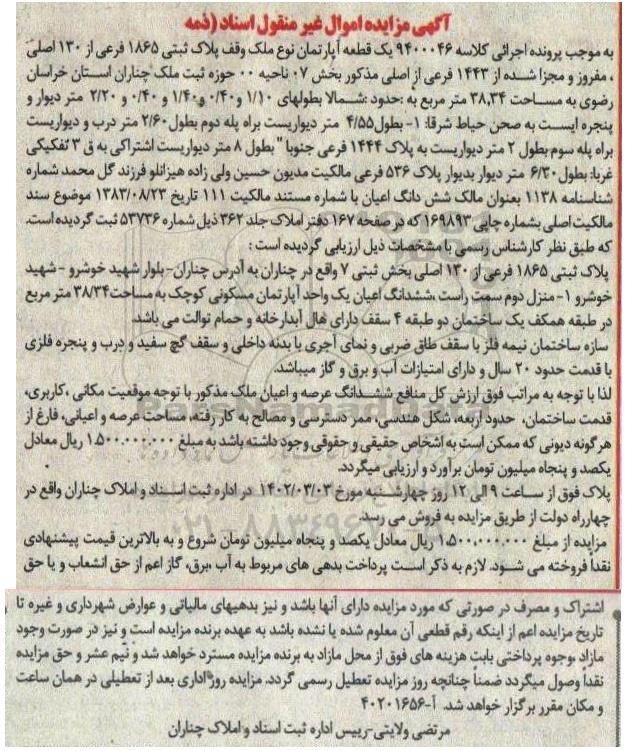 آگهی مزایده اموال غیر منقول اسناد (ذمه
به موجب پرونده اجرائی کلاسه ۹۴۰۰۰۴۶ یک قطعه آپارتمان نوع ملک وقف پلاک ثبتی ۱۸۶۵ فرعی از ۱۳۰ اصلی
، مفروز و مجزا شده از ۱۴۴۳ فرعی از اصلی مذکور بخش ۰۷ ناحیه ۰۰ حوزه ثبت ملک چناران استان خراسان
رضوی به مساحت ۳۸,۳۴ متر مربع به :حدود :شمالا بطولهای ۱/۱۰ و۰/۴۰ و۱/۴۰ و ۰/۴۰ و ۲/۲۰ متر دیوار و
پنجره ایست به صحن حیاط شرقا: ۱- بطول۴/۵۵ متر دیواریست براه پله دوم بطول۲/۶۰ متر درب و دیواریست
براه پله سوم بطول ۲ متر دیواریست به پلاک ۱۴۴۴ فرعی جنوبا " بطول ۸ متر دیواریست اشتراکی به ق ۳ تفکیکی
غربا: بطول۶/۳۰ متر دیوار بدیوار پلاک ۵۳۶ فرعی مالکیت مدیون حسین ولی زاده هیزانلو فرزند گل محمد شماره
شناسنامه ۱۱۳۸ بعنوان مالک شش دانگ اعیان با شماره مستند مالکیت ۱۱۱ تاریخ ۱۳۸۳/۰۸/۲۳ موضوع سند
مالکیت اصلی بشماره چاپی ۱۶۹۸۹۳ که در صفحه ۱۶۷ دفتر املاک جلد ۳۶۲ ذیل شماره ۵۳۷۳۶ ثبت گردیده است.
که طبق نظر کارشناس رسمی با مشخصات ذیل ارزیابی گردیده است :
پلاک ثبتی ۱۸۶۵ فرعی از ۱۳۰ اصلی بخش ثبتی ۷ واقع در چناران به آدرس چناران- بلوار شهید خوشرو - شهید
خوشرو ۱- منزل دوم سمت راست ،ششدانگ اعیان یک واحد آپارتمان مسکونی کوچک به مساحت۳۸/۳۴ متر مربع
در طبقه همکف یک ساختمان دو طبقه ۴ سقف دارای هال آبدارخانه و حمام توالت می باشد.
سازه ساختمان نیمه فلز با سقف طاق ضربی و نمای آجری با بدنه داخلی و سقف گچ سفید و درب و پنجره فلزی
با قدمت حدود ۲۰ سال و دارای امتیازات آب و برق و گاز میباشد.
لذا با توجه به مراتب فوق ارزش کل منافع ششدانگ عرصه و اعیان ملک مذکور با توجه موقعیت مکانی ،کاربری،
قدمت ساختمان، حدود اربعه، شکل هندسی، ممر دسترسی و مصالح به کار رفته، مساحت عرصه و اعیانی، فارغ از
هرگونه دیونی که ممکن است به اشخاص حقیقی و حقوقی وجود داشته باشد به مبلغ ۱,۵۰۰,۰۰۰,۰۰۰ ریال معادل
یکصد و پنجاه میلیون تومان برآورد و ارزیابی میگردد.
پلاک فوق از ساعت ۹ الی ۱۲ روز چهارشنبه مورخ ۱۴۰۲/۰۳/۰۳ در اداره ثبت اسناد و املاک چناران واقع در
چهارراه دولت از طریق مزایده به فروش می رسد.
مزایده از مبلغ ۱,۵۰۰,۰۰۰,۰۰۰ ریال معادل یکصد و پنجاه میلیون تومان شروع و به بالاترین قیمت پیشنهادی
نقدا فروخته می شود. لازم به ذکر است پرداخت بدهی های مربوط به آب ،برق، گاز اعم از حق انشعاب و یا حق
اشتراک و مصرف در صورتی که مورد مزایده دارای آنها باشد و نیز بدهیهای مالیاتی و عوارض شهرداری و غیره تا
تاریخ مزایده اعم از اینکه رقم قطعی آن معلوم شده یا نشده باشد به عهده برنده مزایده است و نیز در صورت وجود
مازاد ،وجوه پرداختی بابت هزینه های فوق از محل مازاد به برنده مزایده مسترد خواهد شد و نیم عشر و حق مزایده
نقدا وصول میگردد ضمناً چنانچه روز مزایده تعطیل رسمی گردد. مزایده روز اداری بعد از تعطیلی در همان ساعت
و مکان مقرر برگزار خواهد شد. آ-۴۰۲۰۱۶۵۶
مرتضی ولایتی-رییس اداره ثبت اسناد و املاک چناران